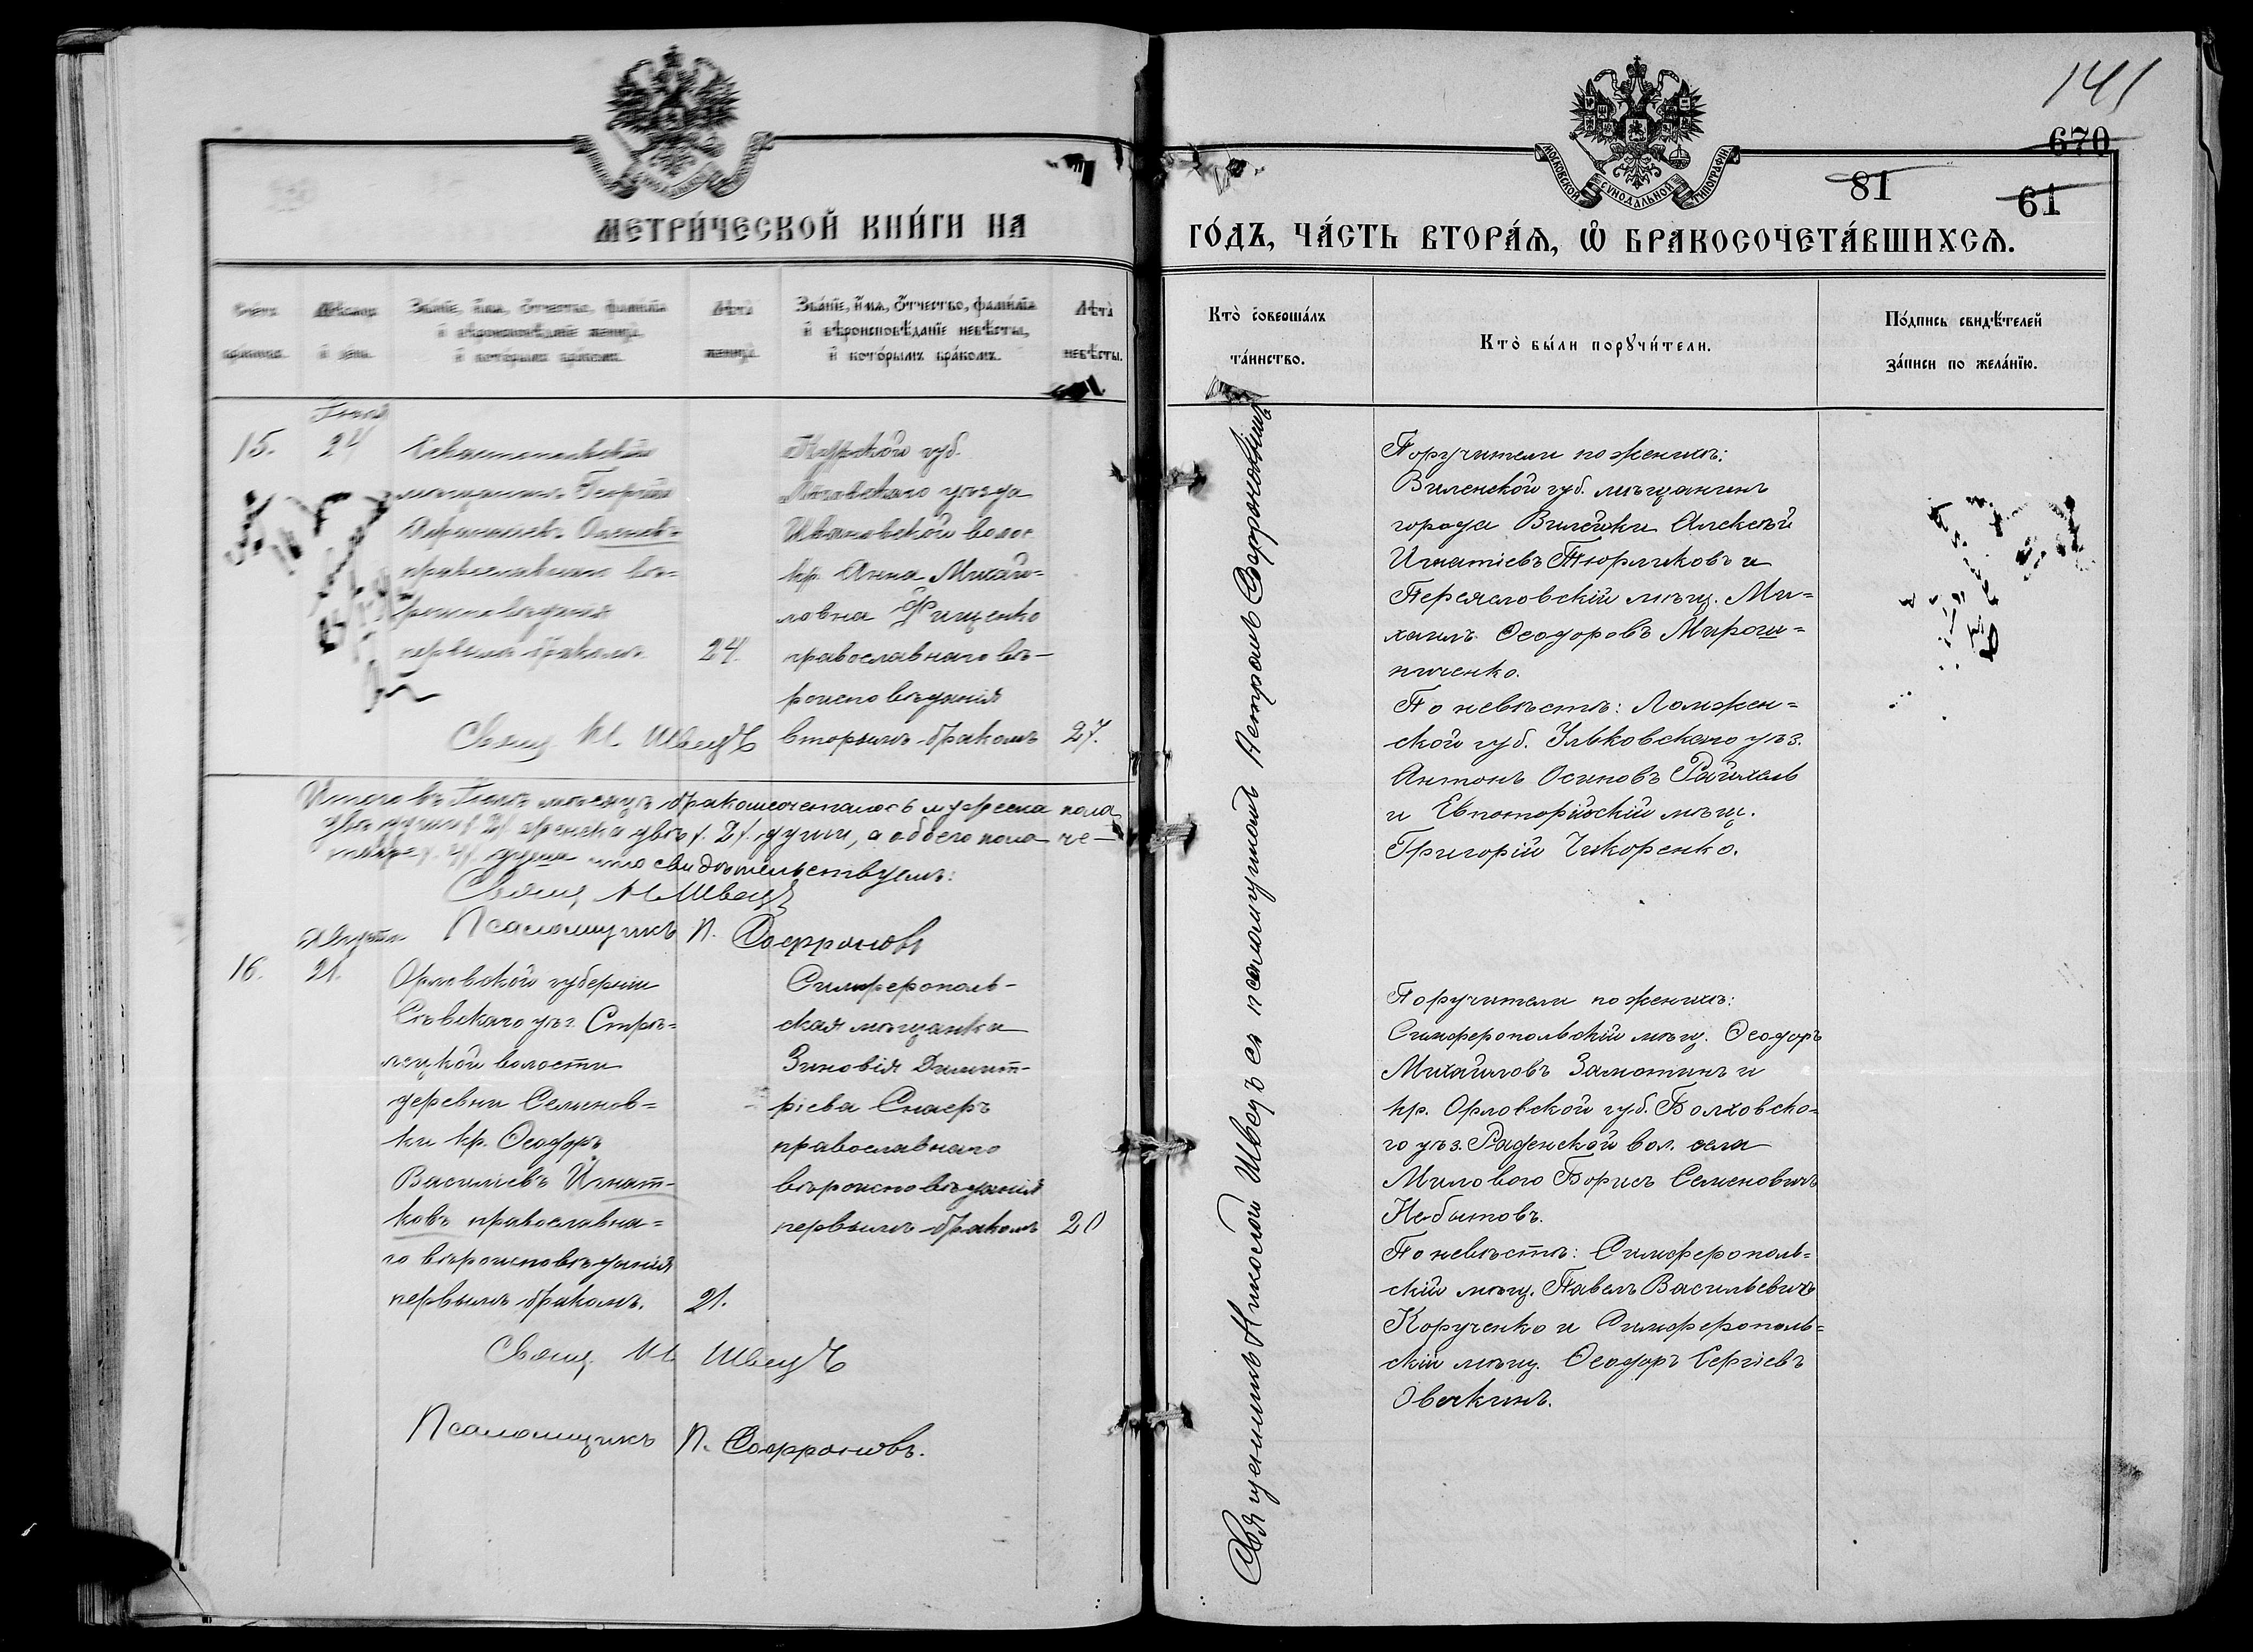 141
670
81
61
МЕТРИ́ЧЕСКОЙ КНИ́ГИ НА
ГО́ДЪ, ЧА́СТЬ ВТОРА́Я, Ѡ҆ БРАКОСОЧЕТА́ВШИХСѦ.
МОСКОВСКОЙ СѴНОДАЛЬНОЙ ТИПОГРАФІИ
Зва́нїе, и҆́мѧ, ѻ҆́тчество, фами́лїѧ
и҆ вѣроисповѣ́данїе жениха̀,
и҆ кото́рымъ бра́комъ.
Лѣта̀
жениха̀.
Зва́нїе, и҆́мѧ, ѻ҆́тчество, фами́лїѧ
и҆ вѣроисповѣ́данїе невѣ́сты,
и҆ кото́рымъ бра́комъ.
Лѣта̀
невѣ́сты.
Кто̀ соверша́лъ
та́инство.
Кто̀ бы́ли порꙋчи́тели.
По́дпись свидѣ́телей
за́писи по жела́нїю.
15.
24
мѣщанинъ Георгій
православнаго вѣ-
роисповѣданія
первымъ бракомъ
24.
Курской губ.
уѣзда
Ивановской волос.
кр. Анна Михаи-
ловна Фищенко
православнаго вѣ-
роисповѣданія
вторымъ бракомъ
27.
Свящ. Н. Швецъ
Священникъ Николай Швецъ съ псаломщикомъ Петромъ Софроновымъ
Поручители по женихѣ:
Виленской губ. мѣщанинъ
города Вилейки Алексѣй
Игнатіевъ Тюрликовъ и
Переясловскій мѣщ. Ми-
хаилъ Ѳеодоровъ Мирош-
ниченко.
По невѣстѣ: Ломжен-
ской губ. уѣз.
Антонъ Осиповъ Райхель
и Евпаторійскій мѣщ.
Григорій Чикоренко.
Итого въ Іюлѣ мѣсяцѣ бракосочеталось мужеска пола
двѣ души /2/ женска двѣ /2/ души, а обоего пола че-
тыре /4/ души что свидѣтельствуемъ:
Свящ. Н. Швецъ
Псаломщикъ П. Софроновъ
Августъ
16.
21.
Орловской губерніи
Сѣвскаго уѣз. Стрѣ-
лецкой волости
деревни Семенов-
ки кр. Ѳеодоръ
Василіевъ Игнат-
ковъ православна-
го вѣроисповѣданія
первымъ бракомъ.
21.
Симферополь-
ская мѣщанка
Зиновія Димит-
ріева Снаеръ
православнаго
вѣроисповѣданія
первымъ бракомъ
20
Поручители по женихѣ:
Симферопольскій мѣщ. Ѳеодоръ
Михайловъ Замотинъ и
кр. Орловской губ. Болховско-
го уѣз. Раденской вол. села
Милового Борисъ Семеновичъ
Небытовъ.
По невѣстѣ: Симферополь-
скій мѣщ. Павелъ Васильевичъ
Корученко и Симферополь-
скій мѣщ. Ѳеодоръ Сергіевъ
Овечкинъ.
Свящ. Н. Швецъ
Псаломщикъ П. Софроновъ.